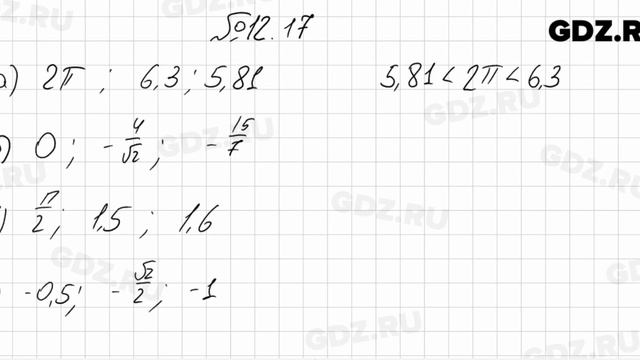 №12.17
GDZ.RU
а) 2π ; 6,3 ; 5,81 5,81 < 2π < 6,3
) 0 ; -4/√2 ; -15/7
) π/2 ; 1,5 ; 1,6
-0,5 ; -√2/2 ; -1
GDZ.RU
GDZ.RU
GDZ.RU
GDZ.RU
GDZ.RU
GDZ.RU